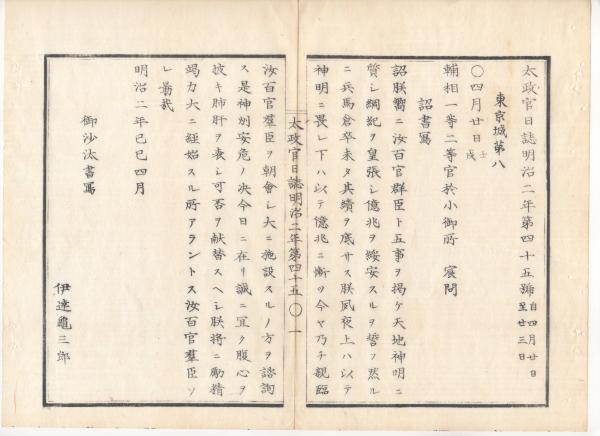 太政官日誌明治二年第四十五號 自四月廿日至廿三日
東京城第八
〇四月廿日壬戌
輔相一等二等官於小御所 宸問
詔書寫
詔朕嚮ニ汝百官群臣ト五事ヲ掲ケ天地神明ニ
質シ綱紀ヲ皇張シ億兆ヲ綏安スルヲ誓フ然ル
ニ兵馬倉卒未タ其績ヲ底サス朕夙夜上ハ以テ
神明ニ畏レ下ハ以テ億兆ニ慚ツ今ヤ乃チ親臨
太政官日誌明治二年第四十五 〇 一
汝百官羣臣ヲ朝會シ大ニ施設スルノ方ヲ諮詢
ス是神州安危ノ决今日ニ在リ誠ニ宜ク腹心ヲ
披キ肺肝ヲ表シ可否ヲ献替スヘシ朕將ニ勵精
竭力大ニ經始スル所アラントス汝百官羣臣ソ
レ勗哉
明治二年己巳四月
御沙汰書寫
伊達龜三郎